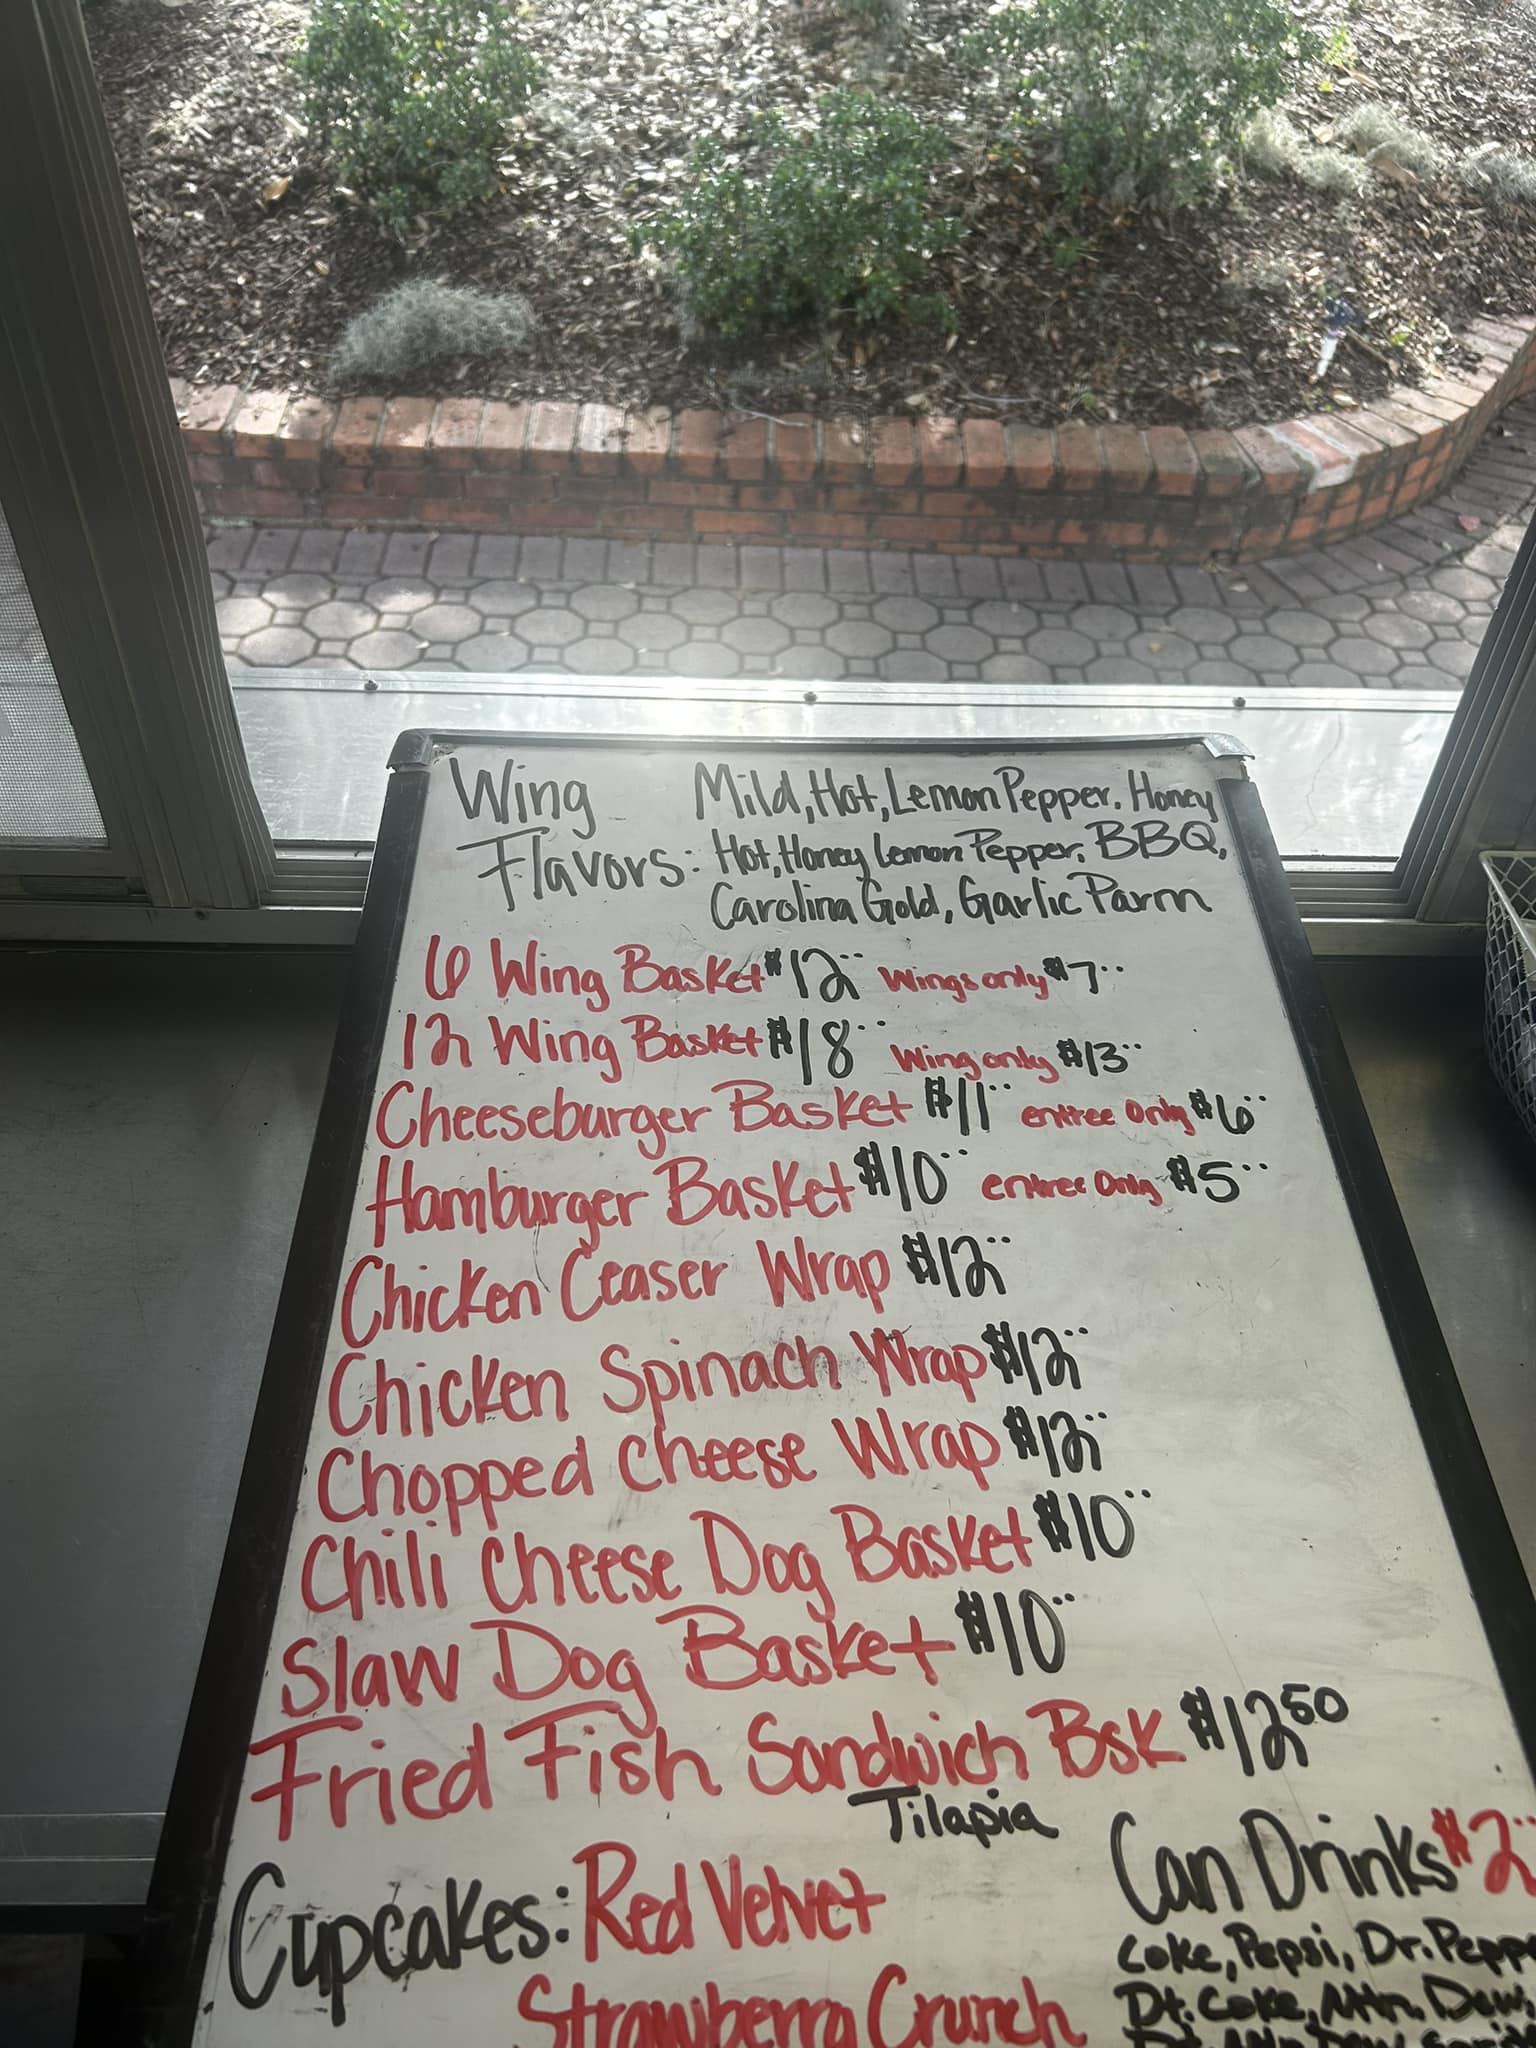 Wing Flavors: Mild, Hot, Lemon Pepper, Honey
Hot, Honey Lemon Pepper, BBQ,
Carolina Gold, Garlic Parm
6 Wing Basket $12.. Wings only $7..
12 Wing Basket $18.. Wing only $13..
Cheeseburger Basket $11.. entree Only $6..
Hamburger Basket $10.. entree Only $5..
Chicken Ceaser Wrap $12..
Chicken Spinach Wrap $12..
Chopped Cheese Wrap $12..
Chili Cheese Dog Basket $10..
Slaw Dog Basket $10..
Fried Fish Sandwich Bsk $12 50
Tilapia
Cupcakes: Red Velvet
Strawberry Crunch
Can Drinks $2..
Coke, Pepsi, Dr. Peppe
Dt. Coke, Mtn. Dew,